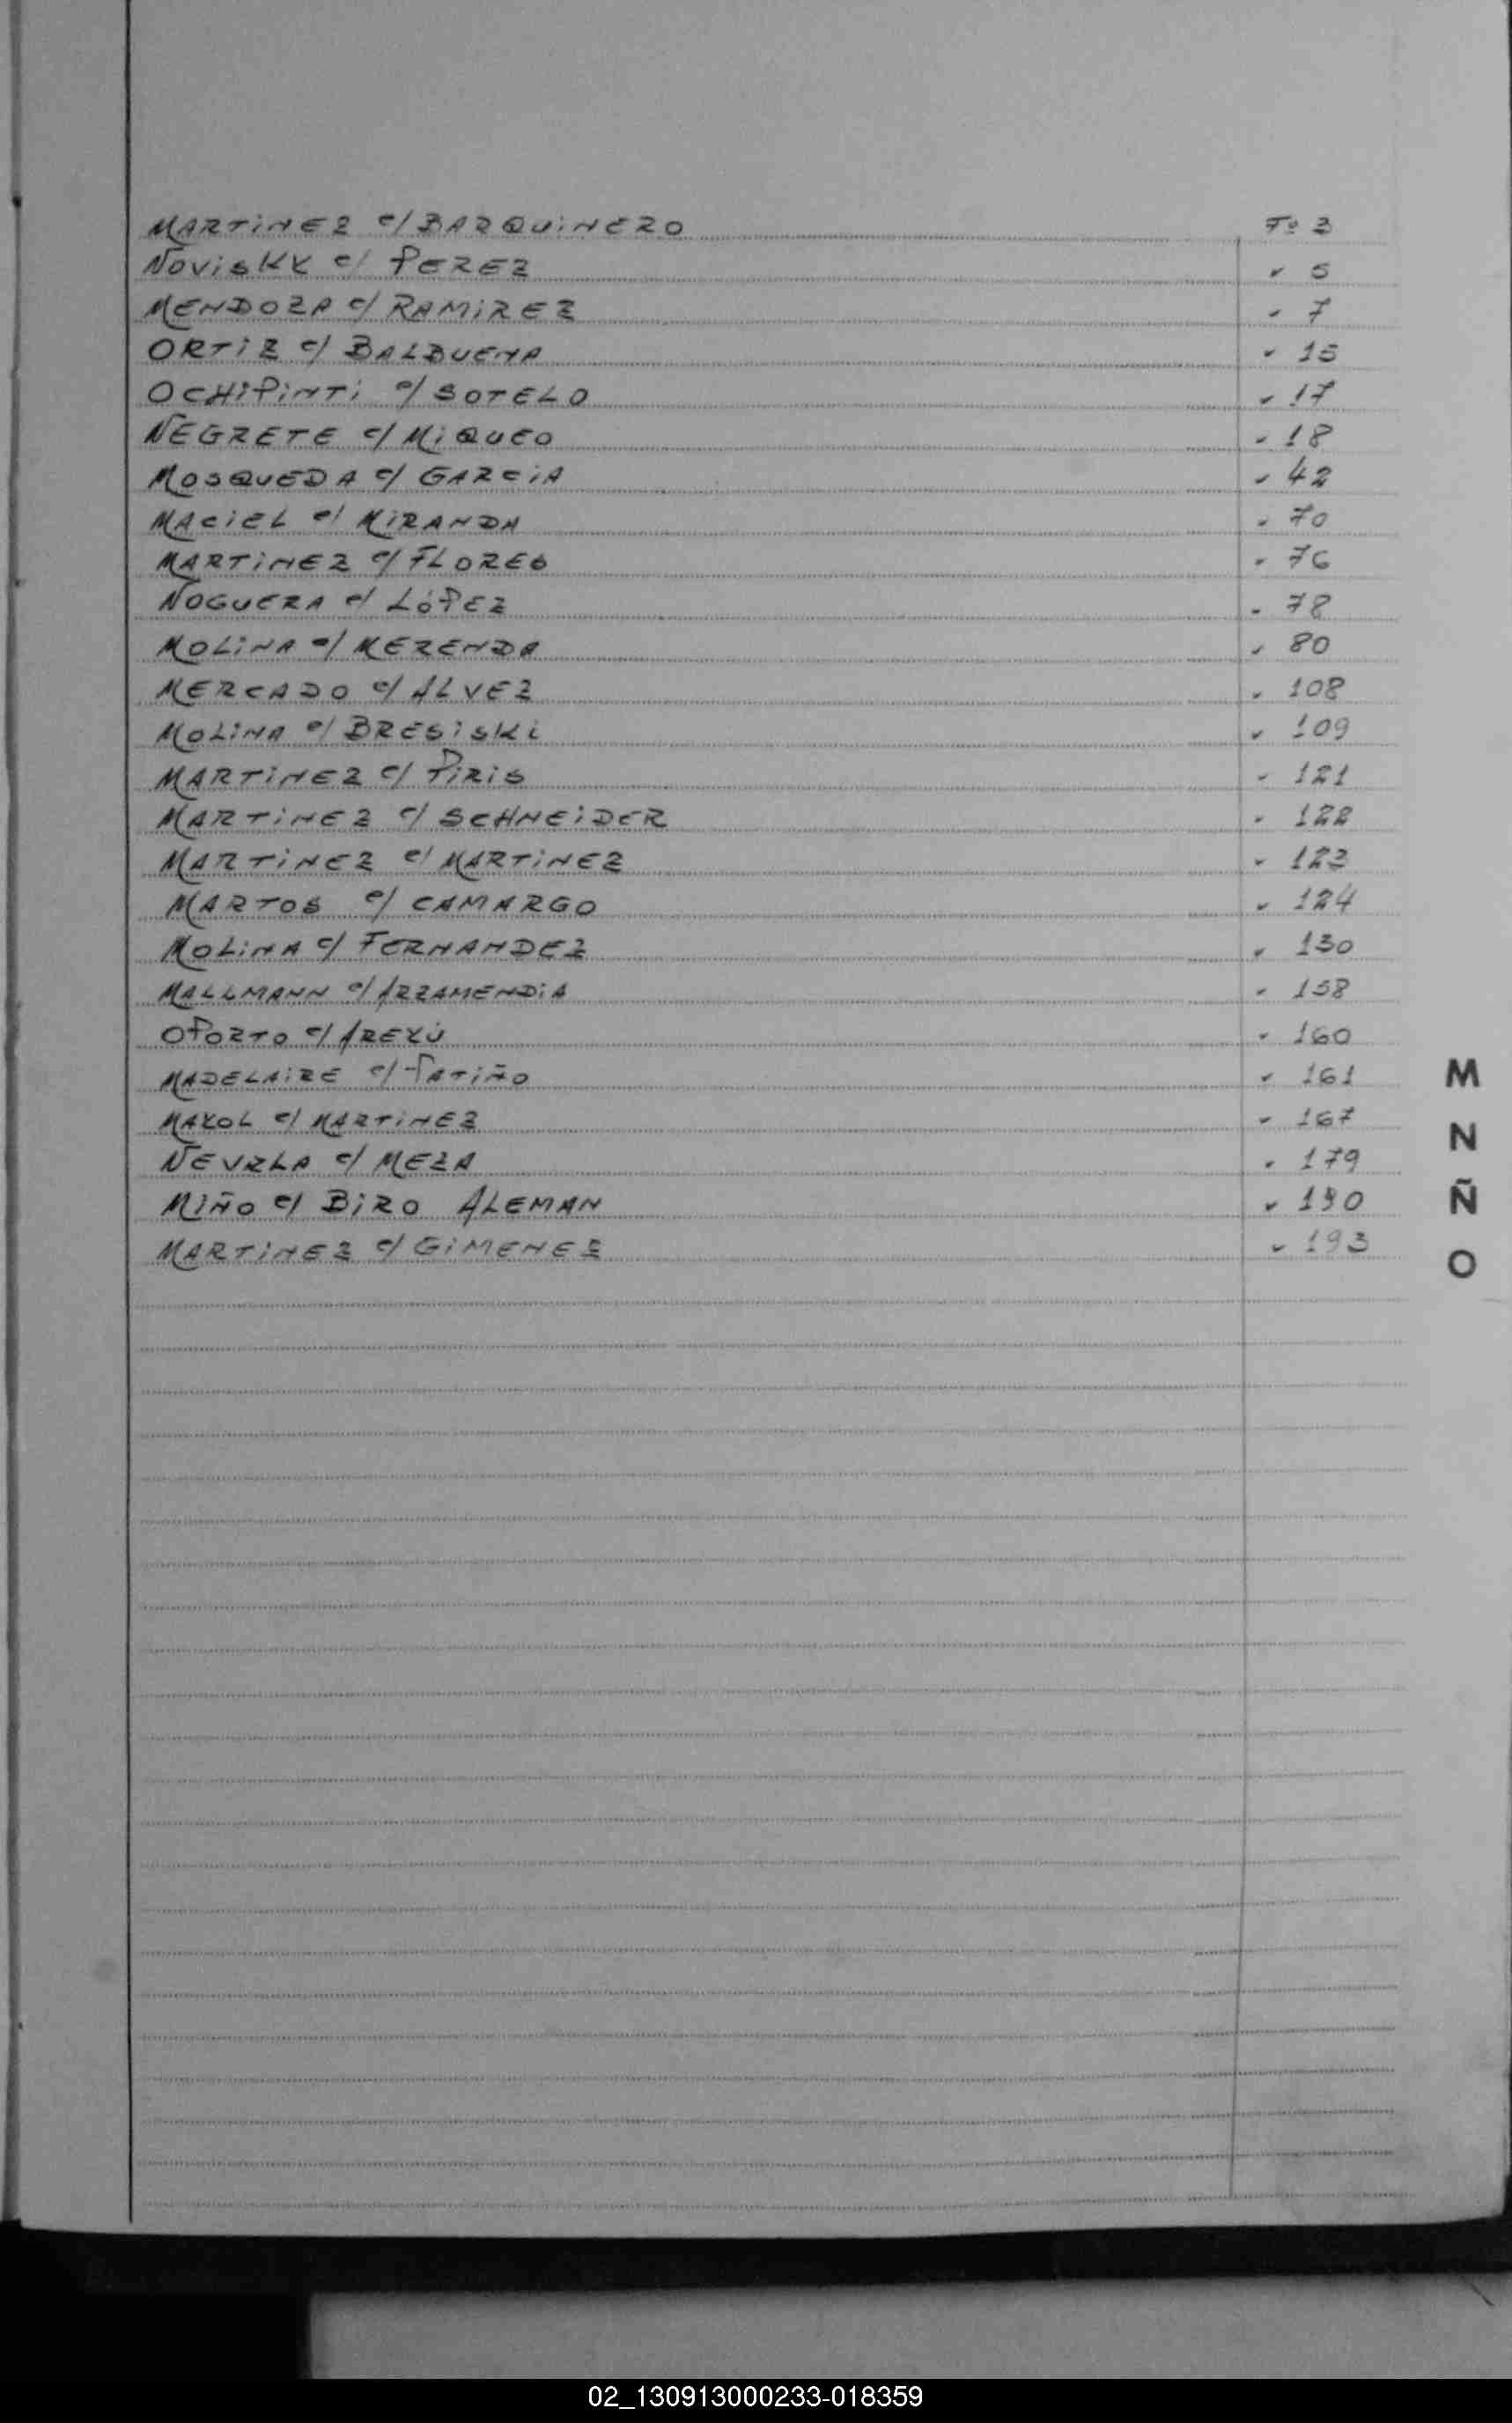 MARTINEZ c/ BARQUINERO Fº 3
NOVISKY c/ PEREZ " 5
MENDOZA c/ RAMIREZ " 7
ORTIZ c/ BALBUENA " 15
OCHIPINTI c/ SOTELO " 17
NEGRETE c/ MIQUEO " 18
MOSQUEDA c/ GARCIA " 42
MACIEL c/ MIRANDA " 70
MARTINEZ c/ FLORES " 76
NOGUERA c/ LÓPEZ " 78
MOLINA c/ MERENDA " 80
MERCADO c/ ALVEZ " 108
MOLINA c/ BRESISKI " 109
MARTINEZ c/ PIRIS " 121
MARTINEZ c/ SCHNEIDER " 122
MARTINEZ c/ MARTINEZ " 123
MARTOS c/ CAMARGO " 124
MOLINA c/ FERNANDEZ " 130
MALLMANN c/ ARZAMENDIA " 158
OPORTO c/ AREYÚ " 160
MADELAIRE c/ PATIÑO " 161
MAYOL c/ MARTINEZ " 167
NEVRLA c/ MEZA " 179
MIÑO c/ BIRO ALEMAN " 190
MARTINEZ c/ GIMENEZ " 193
M
N
Ñ
O
02_130913000233-018359